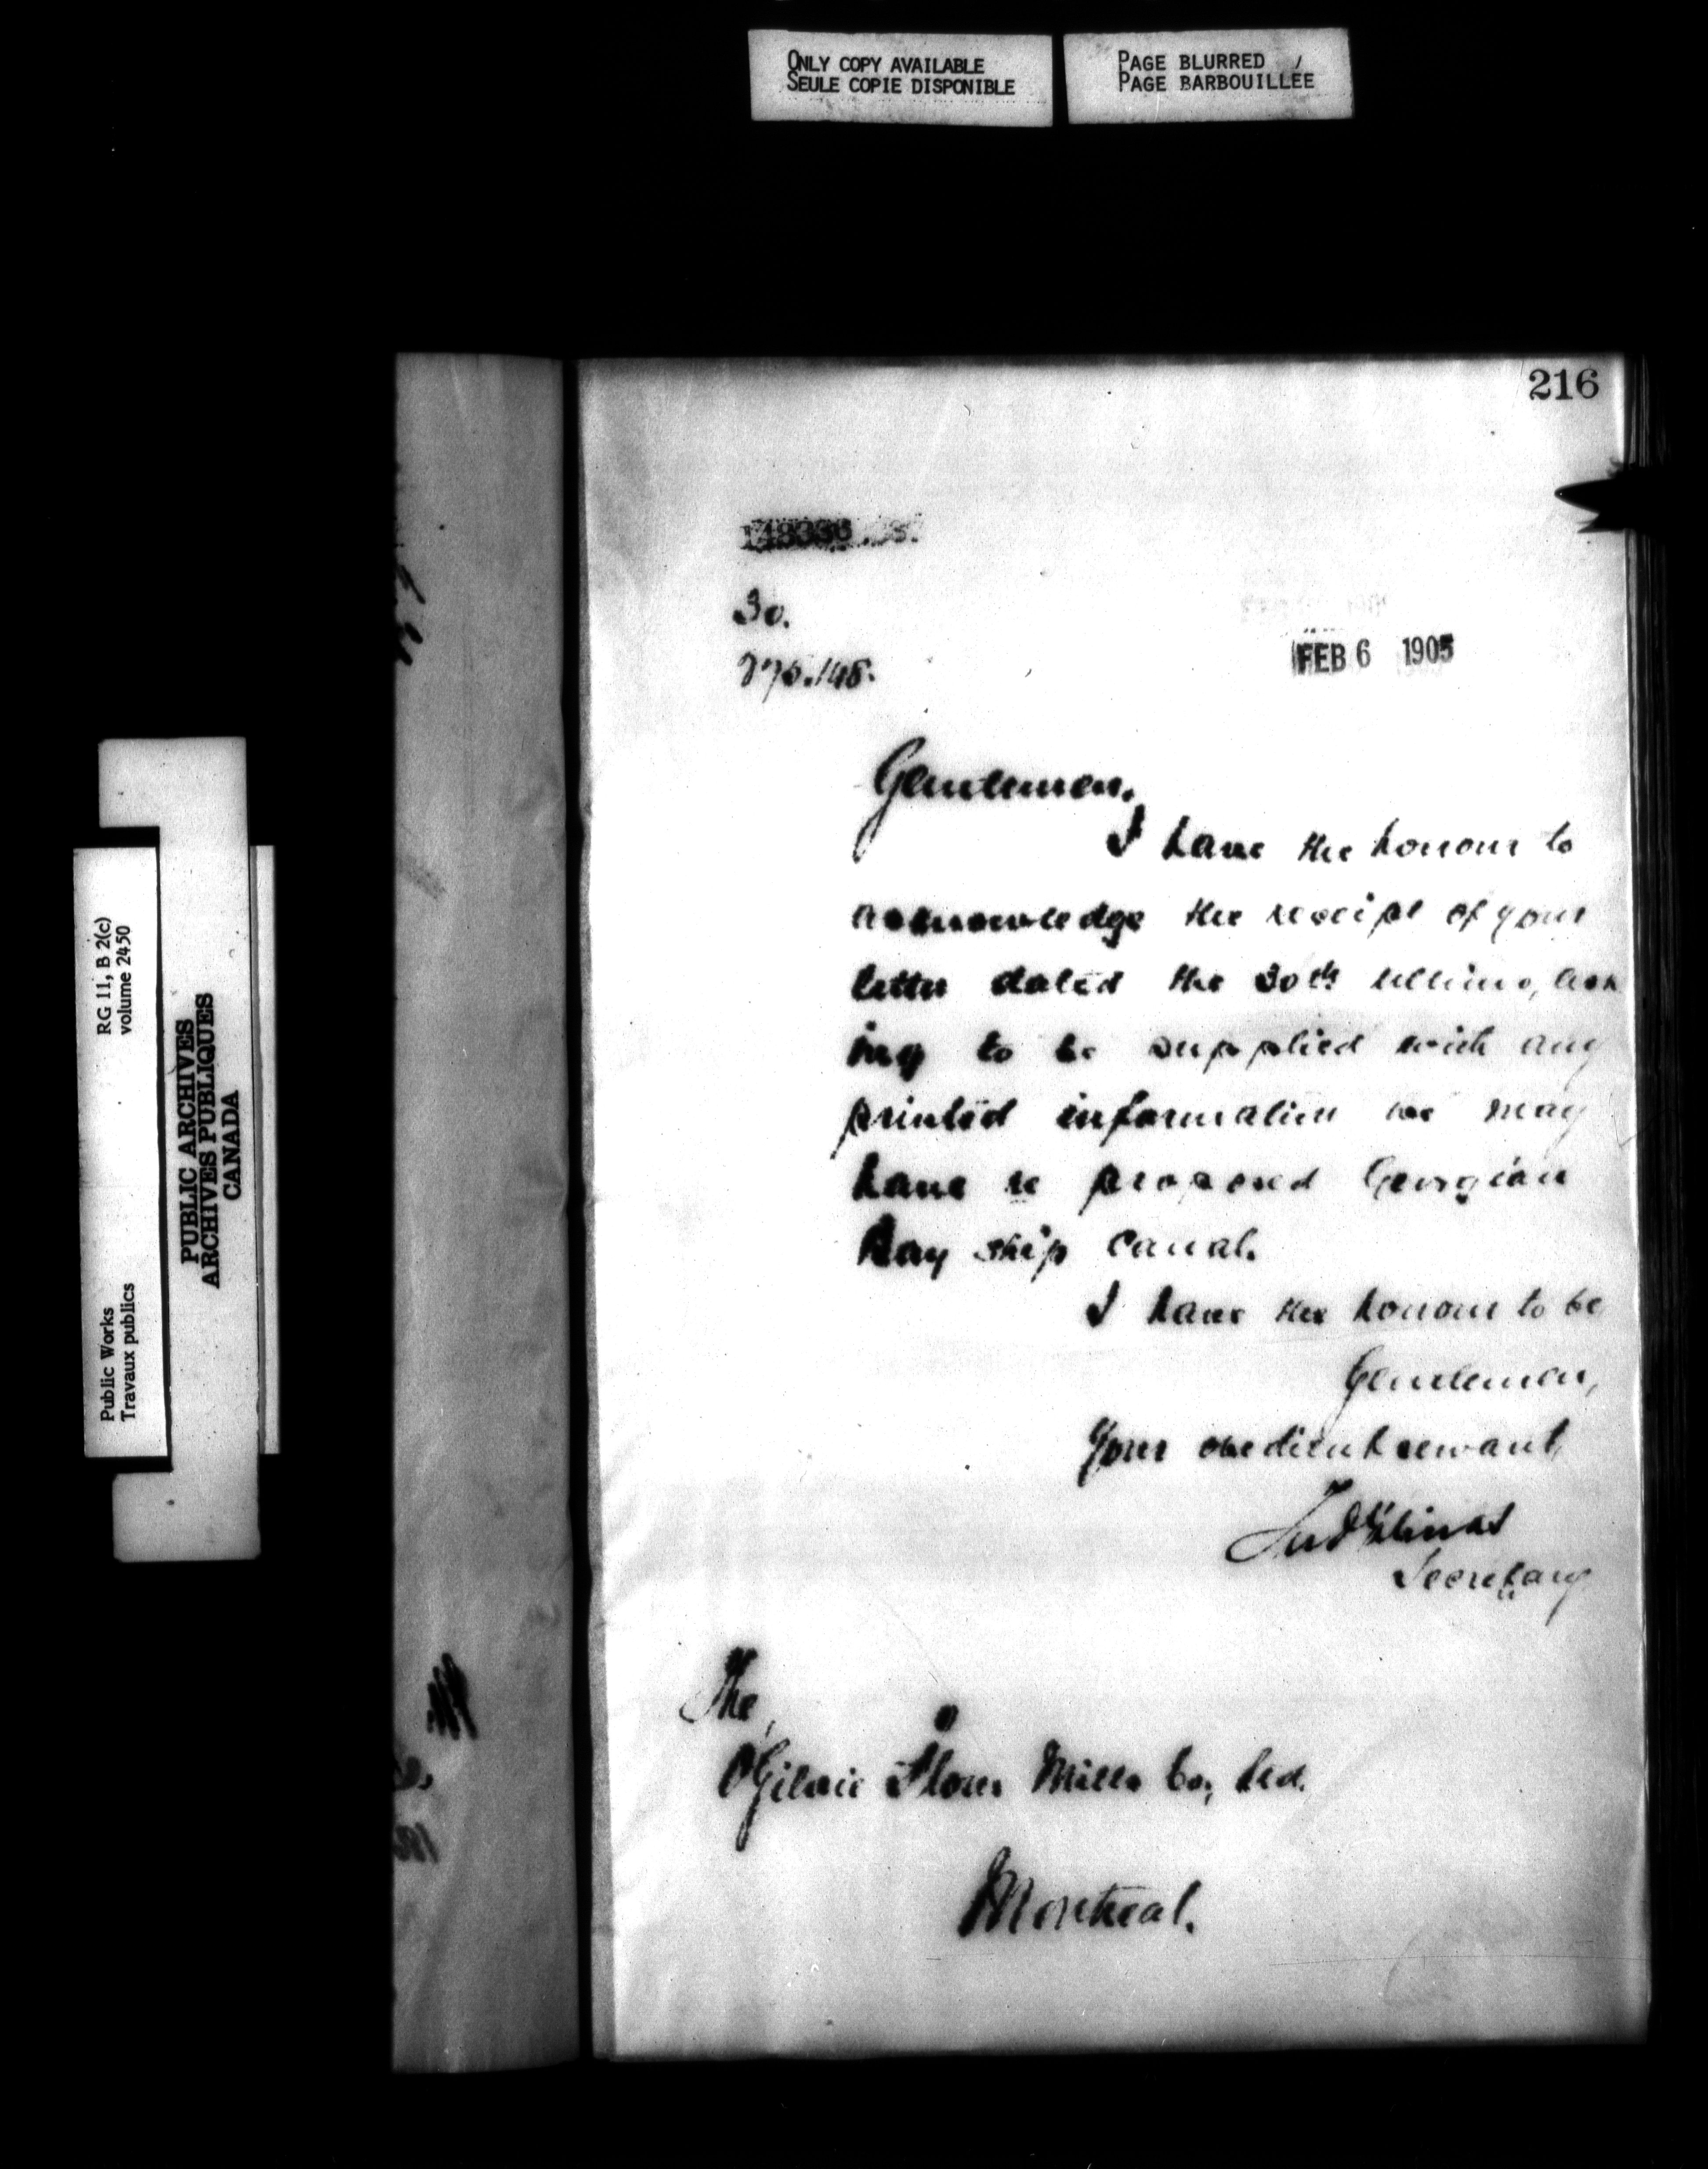 ONLY COPY AVAILABLE
SEULE COPIE DISPONIBLE
PAGE BLURRED
PAGE BARBOUILLÉE
216
30.
FEB 6 1905
Gentlemen,
I have the honour to
acknowledge the receipt of your
letter dated the 30th ultimo, ask
ing to be supplied with any
printed information we may
have re proposed Georgian
Bay ship canal.
I have the honour to be
Gentlemen,
Your obedient servant,
Secretary
The
Ogilvie Flour Mills Co, Ltd.
Montreal.
RG 11, B 2(c)
volume 2450
Public Works
Travaux publics
PUBLIC ARCHIVES
ARCHIVES PUBLIQUES
CANADA